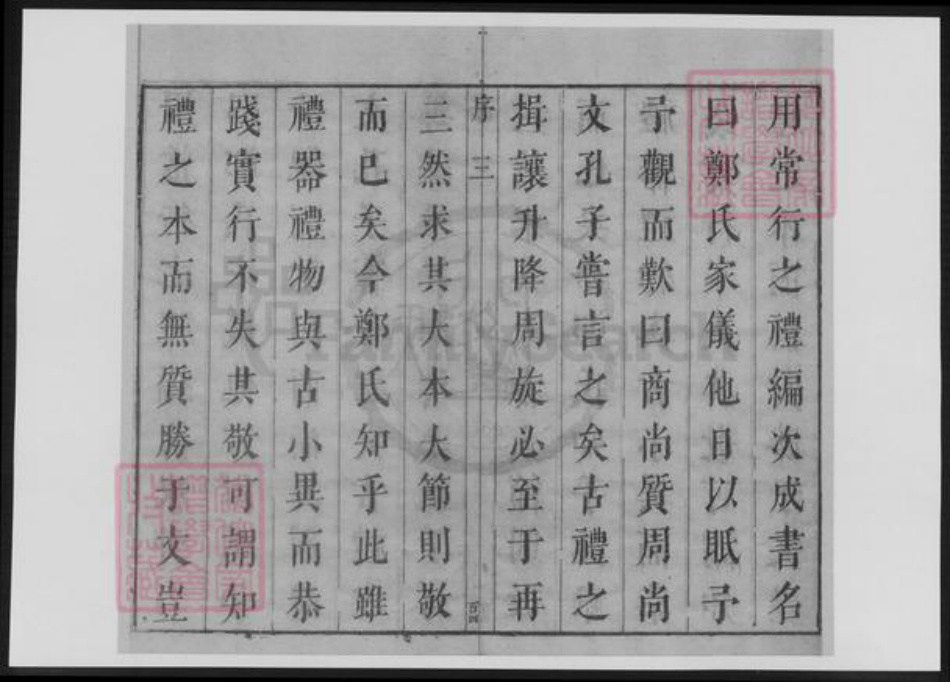 用常行之禮編次成書名
曰鄭氏家儀他日以眂予
予觀而歎曰商尚質周尚
文孔子嘗言之矣古禮之
揖讓升降周旋必至于再
序 三
三然求其大本大節則敬
而已矣今鄭氏知乎此雖
禮器禮物與古小異而恭
踐實行不失其敬可謂知
禮之本而無質勝于文豈
FamilySearch